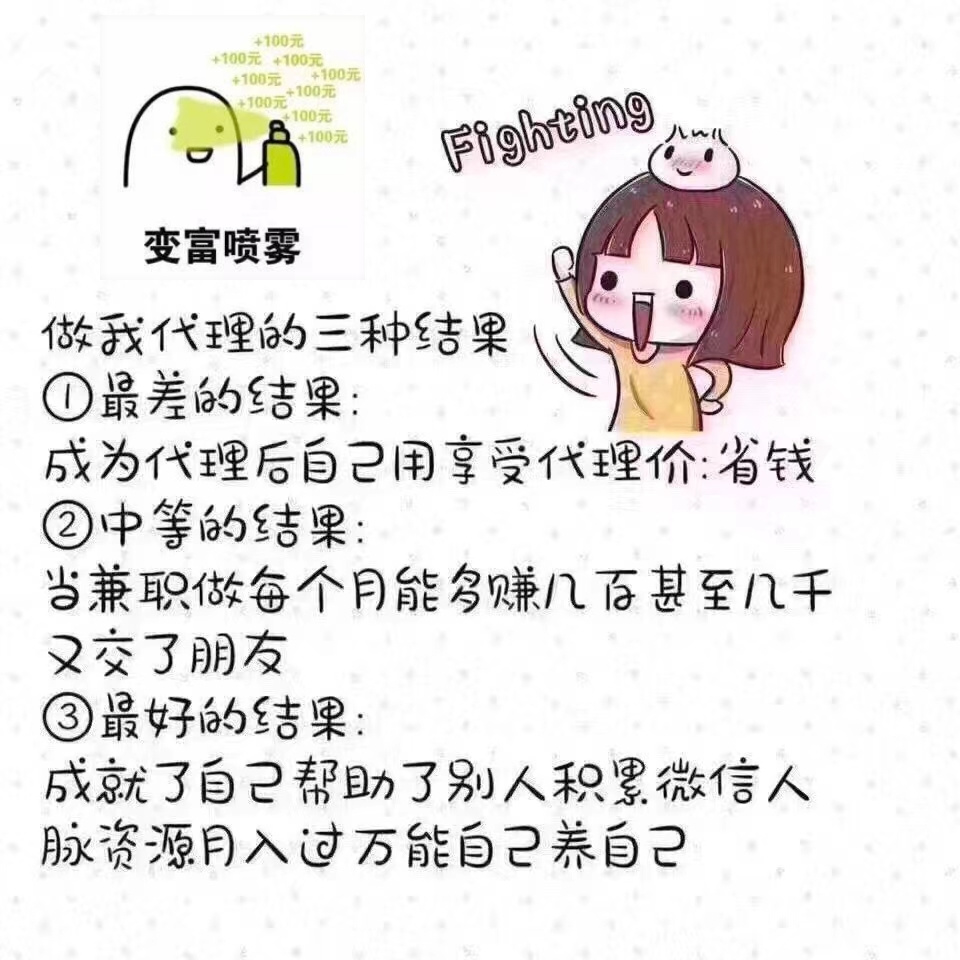 +100元
+100元 +100元
+100元 +100元
+100元
+100元
+100元
+100元
变富喷雾
Fighting
做我代理的三种结果
①最差的结果:
成为代理后自己用享受代理价:省钱
②中等的结果:
当兼职做每个月能多赚几百甚至几千
又交了朋友
③最好的结果:
成就了自己帮助了别人积累微信人
脉资源月入过万能自己养自己